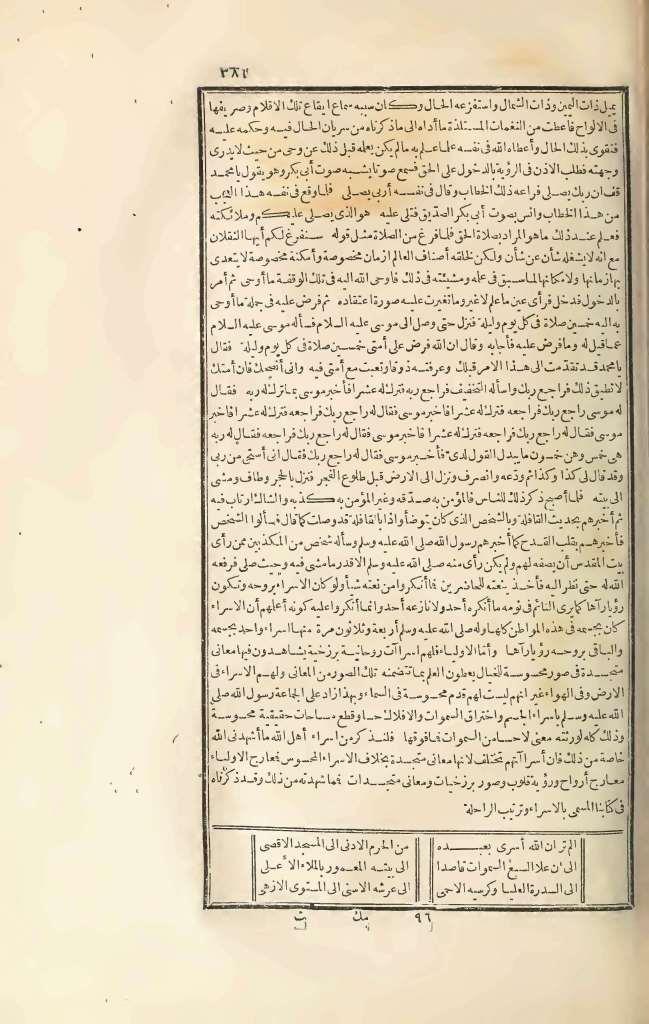 ٣٨١
يميل ذات اليمين وذات الشمال واستفزعه الحال وكان سببه سماع ايقاع تلك الاقلام وصريفها
فى الالواح فأعطت من النغمات المستلذة ما أداه الى ما ذكرناه من سريان الحال فيه وحكمه عليه
فتقوى بذلك الحال وأعطاه الله فى نفسه علما علم به مالم يكن يعلمه قبل ذلك عن وحى من حيث لا يدرى
وجهته فطلب الاذن فى الرؤية بالدخول على الحق فسمع صوتا يشبه صوت أبى بكر وهو يقول يا محمد
قف ان ربك يصلى فراعه ذلك الخطاب وقال فى نفسه أربى يصلى فلما وقع فى نفسه هذا التعجب
من هذا الخطاب وانس بصوت أبى بكر الصدّيق فتلى عليه هو الذى يصلى عليكم وملائكته
فعلم عند ذلك ما هو المراد بصلاة الحق فلما فرغ من الصلاة مثل قوله سنفرغ لكم أيها الثقلان
مع انه لا يشغله شأن عن شأن ولكن لخلقه أصناف العالم ازمان مخصوصة وأمكنة مخصوصة لا يتعدى
بها زمانها ولا مكانها لما سبق فى علمه ومشيئته فى ذلك فاوحى الله اليه فى تلك الوقفة ما أوحى ثم أمر
بالدخول فدخل فرأى عين ما علم لا غير وما تغيرت عليه صورة اعتقاده ثم فرض عليه فى جملة ما أوحى
به اليه خمسين صلاة فى كل يوم وليلة فنزل حتى وصل الى موسى عليه السلام فسأله موسى عليه السلام
عما قيل له وما فرض عليه فأجابه وقال ان الله فرض على أمتى خمسين صلاة فى كل يوم وليلة فقال
يا محمد قد تقدّمت الى هذا الامر قبلك وعرفته ذوقا وتعبت مع أمتى فيه وانى أنصحك فان أمتك
لا تطيق ذلك فراجع ربك واسأله التخفيف فراجع ربه فترك له عشرا فأخبر موسى بما ترك له ربه فقال
له موسى راجع ربك فراجعه فترك له عشرا فاخبر موسى فقال له راجع ربك فراجعه فترك له عشرا فاخبر
موسى فقال له راجع ربك فراجعه فترك له عشرا فاخبر موسى فقال له راجع ربك فراجعه فقال له ربه
هى خمس وهن خمسون ما يبدل القول لدى فأخبر موسى فقال له راجع ربك فقال انى أستحي من ربى
وقد قال لى كذا وكذا ثم ودّعه وانصرف ونزل الى الارض قبل طلوع الفجر فنزل بالحجر وطاف ومشى
الى بيته فلما أصبح ذكر ذلك للناس فالمؤمن به صدّقه وغير المؤمن به كذبه والشاك ارتاب فيه
ثم أخبرهم بحديث القافلة وبالشخص الذى كان يتوضأ واذا بالقافلة قد وصلت كما قال فسألوا الشخص
فأخبرهم بقلب القدح كما أخبرهم رسول الله صلى الله عليه وسلم وسأله شخص من المكذبين ممن رأى
بيت المقدس أن يصفه لهم ولم يكن رأى منه صلى الله عليه وسلم الا قدر ما مشى فيه وحيث صلى فرفعه
الله له حتى نظر اليه فأخذ ينعته للحاضرين فما أنكروا من نعته شيأ ولو كان الاسراء بروحه وتكون
رؤيا رآها كما يرى النائم فى نومه ما أنكره أحد ولا نازعه أحد وانما أنكروا عليه كونه أعلمهم أن الاسراء
كان بجسمه فى هذه المواطن كلها وله صلى الله عليه وسلم أربعة وثلاثون مرة منها اسراء واحد بجسمه
والباقى بروحه رؤيا رآها وأما الاولياء فلهم اسراآت روحانية برزخية يشاهدون فيها معانى
متجسدة فى صور محسوسة للخيال يعطون العلم بما تتضمنه تلك الصور من المعانى ولهم الاسراء فى
الارض وفى الهواء غير انهم ليست لهم قدم محسوسة فى السماء وبهذا زاد على الجماعة رسول الله صلى
الله عليه وسلم باسراء الجسم واختراق السموات والافلاك حسا وقطع مسافات حقيقية محسوسة
وذلك كله لورثته معنى لا حسا من السموات فما فوقها فلنذكر من اسراء أهل الله ما أشهدنى الله
خاصة من ذلك فان أسرا آتهم تختلف لانها معانى متجسدة بخلاف الاسراء المحسوس فمعارج الاولياء
معارج أرواح ورؤية قلوب وصور برزخيات ومعانى متجسدات فما شهدته من ذلك وقد ذكرناه
فى كتابنا المسمى بالاسراء وترتيب الراحلة
الم تر ان الله أسرى بعبده من الحرم الادنى الى المسجد الاقصى
الى ان علا السبع السموات قاصدا الى بيته المعمور بالملاء الأعلى
الى السدرة العليا وكرسيه الاحمى الى عرشه الاسنى الى المستوى الازهى
٩٦ مك ث